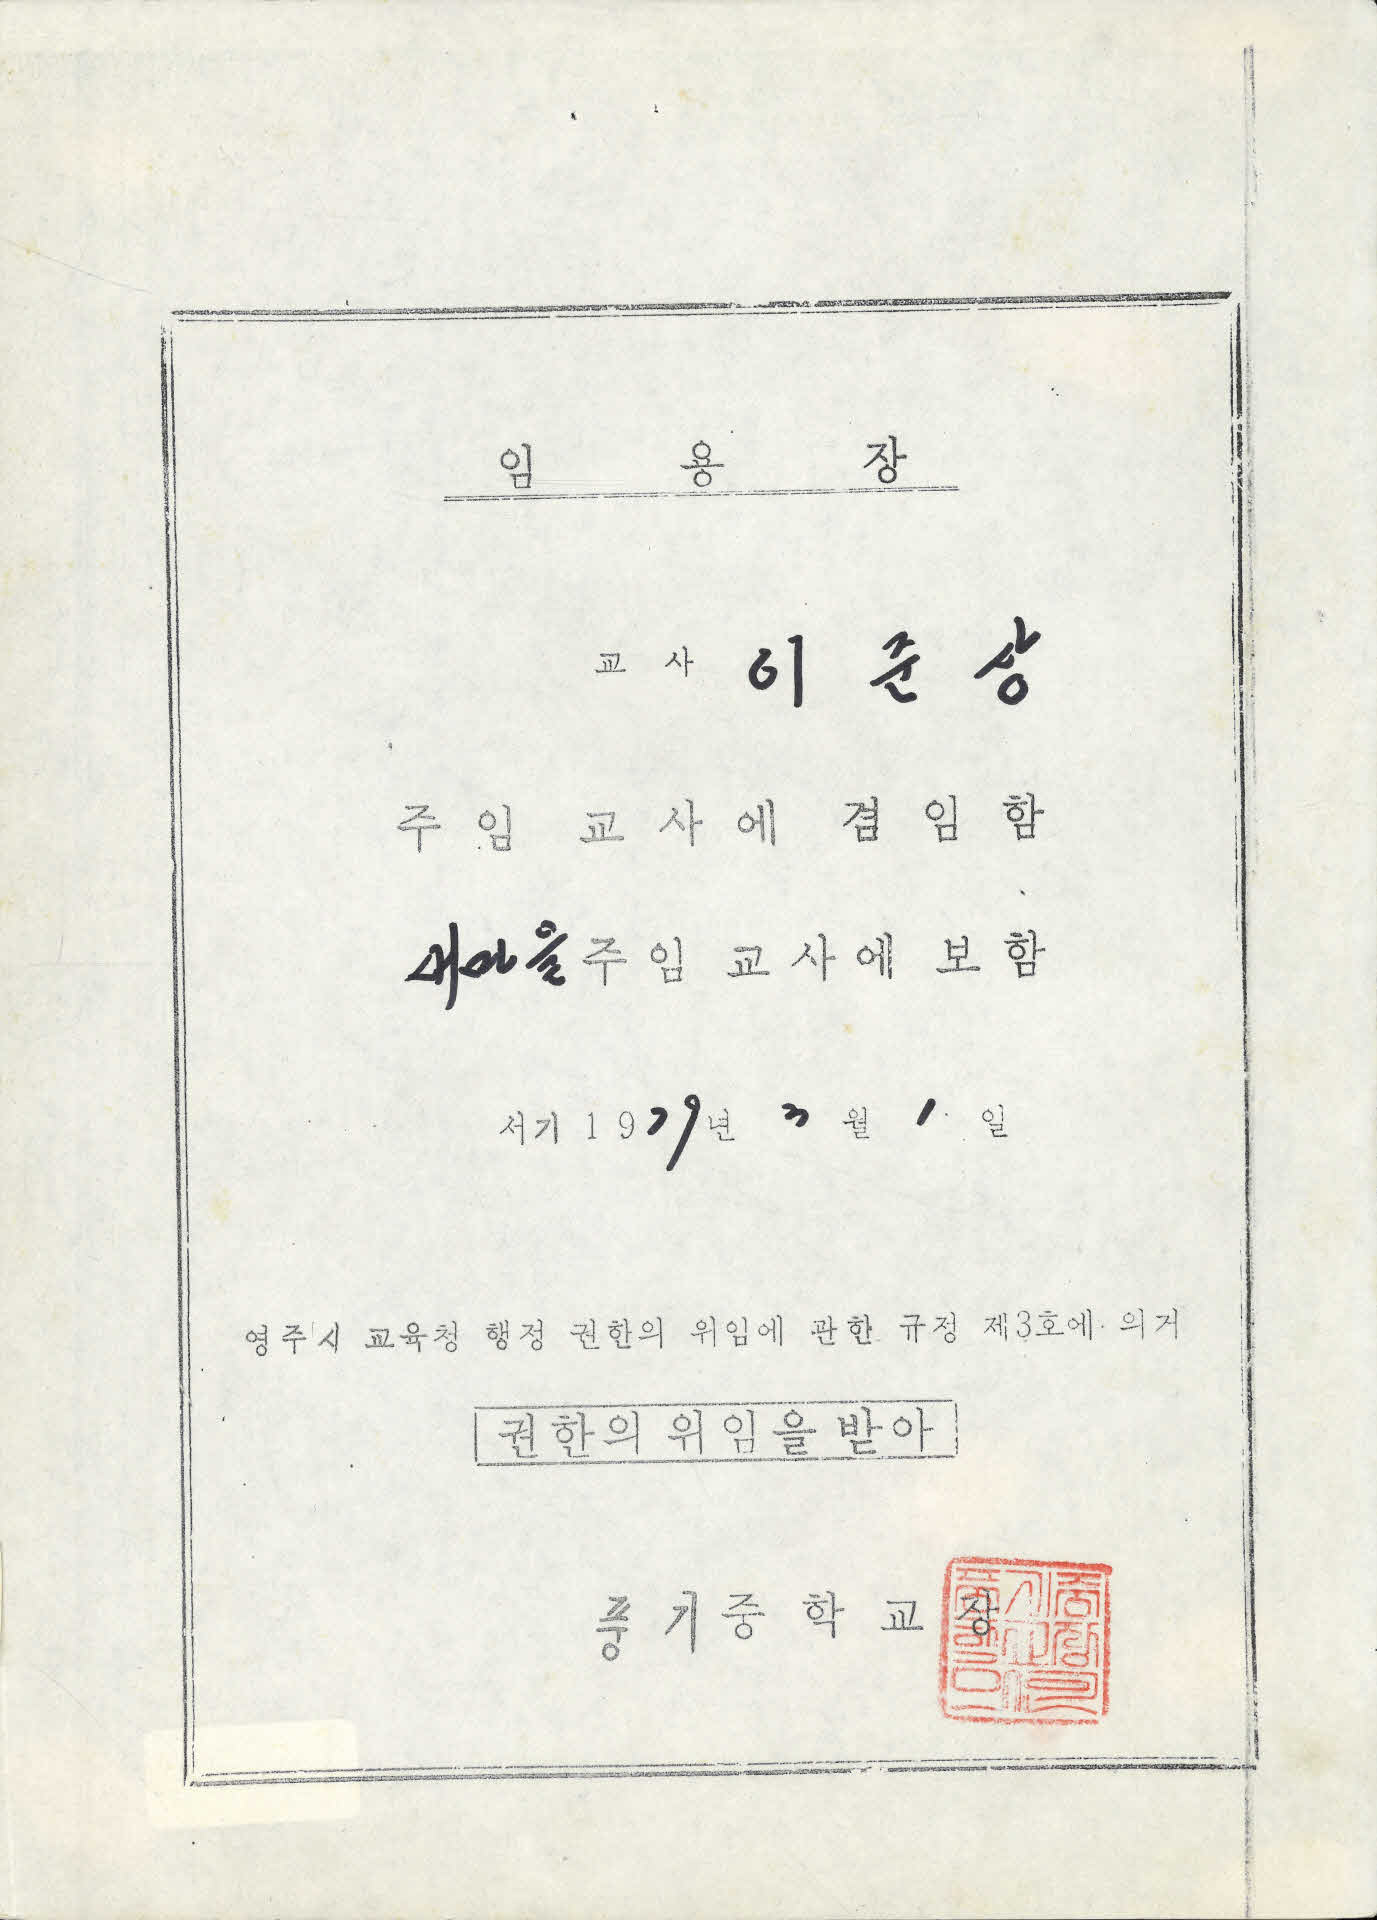 임 용 장
교 사 이 준 상
주 임 교 사 에 겸 임 함
새마을 주 임 교 사 에 보 함
서기 1979년 3 월 1 일
영주시 교육청 행정 권한의 위임에 관한 규정 제3호에 의거
권한의 위임을 받아
풍 기 중 학 교 장